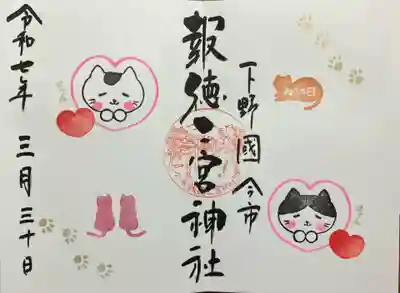 下野國 今市
報徳二宮神社
令和七年 三月三十日